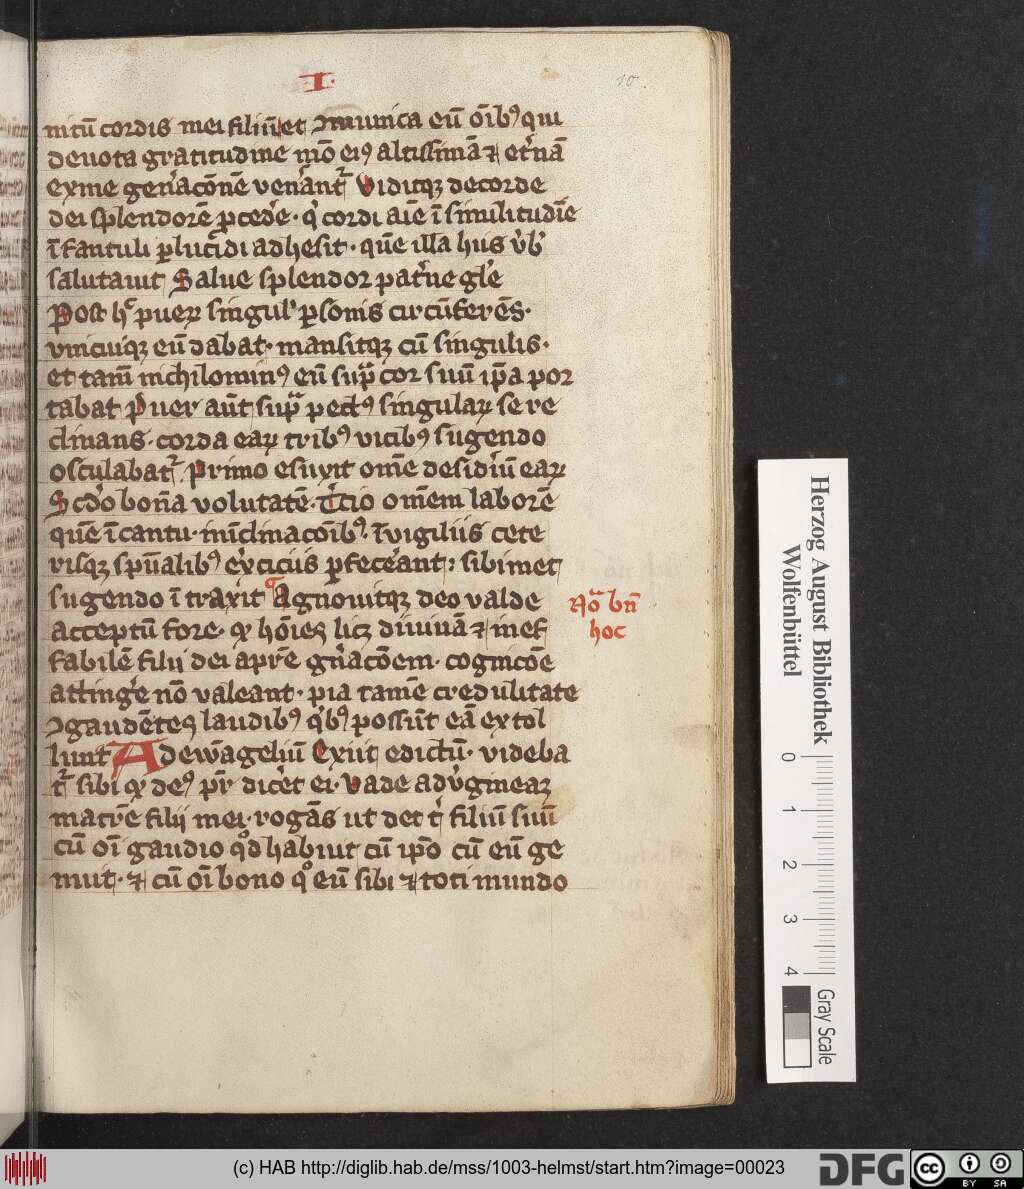 I.
10
nitū cordis mei filiū et ꝯmunica eū oīb⁹ qui
deuota gratitudine mō ei⁹ altissimā ⁊ et̓nā
exme gen̓acōnē ven̓ant᷑ Viditqꝫ decorde
dei splendorē ꝓced̓e · q̇ cordi aīe ī similitudīe
īfantuli ꝑlucidi adhesit · quē illa hus v̓b'
salutauit Salue splendor pat̓ne gl̓e
Post h̄ pueꝝ singul' ꝑsonis circūferēs·
vnicuiqꝫ eū dabat · mansitqꝫ cū singulis·
et tam̄ nichilomin⁹ eū sup̄ cor suū ip̄a por
tabat Puer aūt sup̄ pect⁹ singulaꝝ se re
clinans · corda eaꝝ trib⁹ vicib⁹ sugendo
osculabat᷑ . Primo esuxit om̄e desid̓iū eaꝝ
Scd̓o bona volūtatē · T̓cio omēm laborē
quē ī cantu · ī īclinacōīb⁹ · ī vigiliis cete
risqꝫ spūalib⁹ ex̓ciciis ꝑfec̓ant : sibimet
sugendo ī traxit Agnouitqꝫ deo valde
acceptū fore · ꝙ hōīes licꝫ diuinā ⁊ inef
fabilē filii dei apr̄e gn̄acōem · cognicōe
atting̓e nō valeant · pia tamē credulitate
ꝯgaudētes laudib⁹ q̇b⁹ possūt eā extol
lunt Ad ewāgeliū Exiit edictū · videba
t᷑ sibi ꝙ de⁹ pr̄ dic̓et ei · Vade adv̓gineaꝫ
matrē filij mei · rogās ut det t' filiū suū
cū oī gaudio qd̓ habuit cū ip̄o cū eū ge
nuit · ⁊ cū oī bono qͦ eū sibi ⁊ toti mundo
No bn̄
hoc
Herzog August Bibliothek
Wolfenbüttel
0 1 2 3 4
Gray Scale
(c) HAB http://diglib.hab.de/mss/1003-helmst/start.htm?image=00023
DFG
cc BY SA